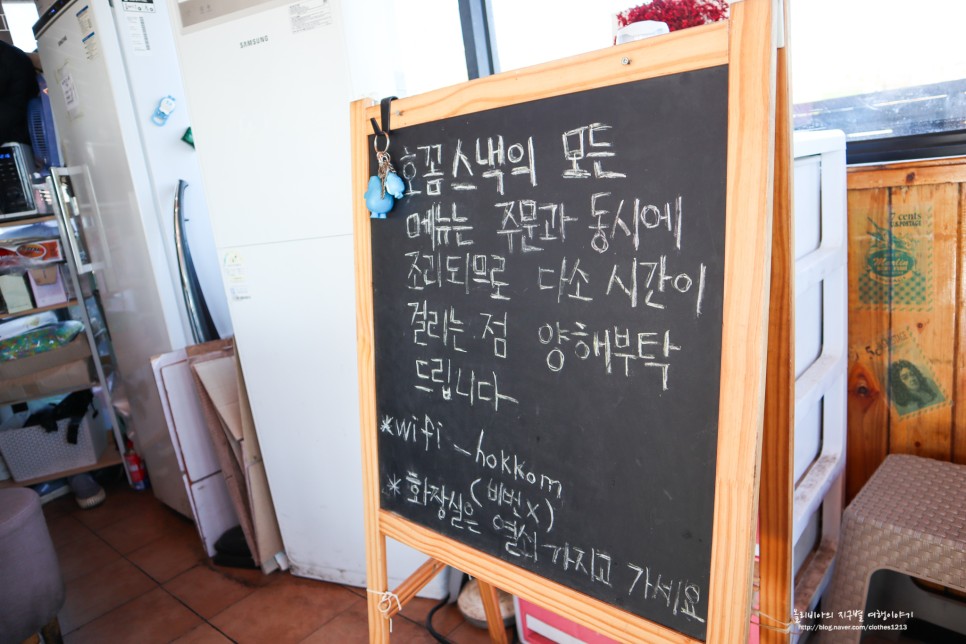 SAMSUNG
호꼼스낵의 모든
메뉴는 주문과 동시에
조리되므로 다소 시간이
걸리는 점 양해부탁
드립니다
*wifi _hokkom
(비번x)
*화장실은 열쇠 가지고 가세요
7 cents
Merlin
올리비아의 지구별 여행이야기
http://blog.naver.com/clothes1213